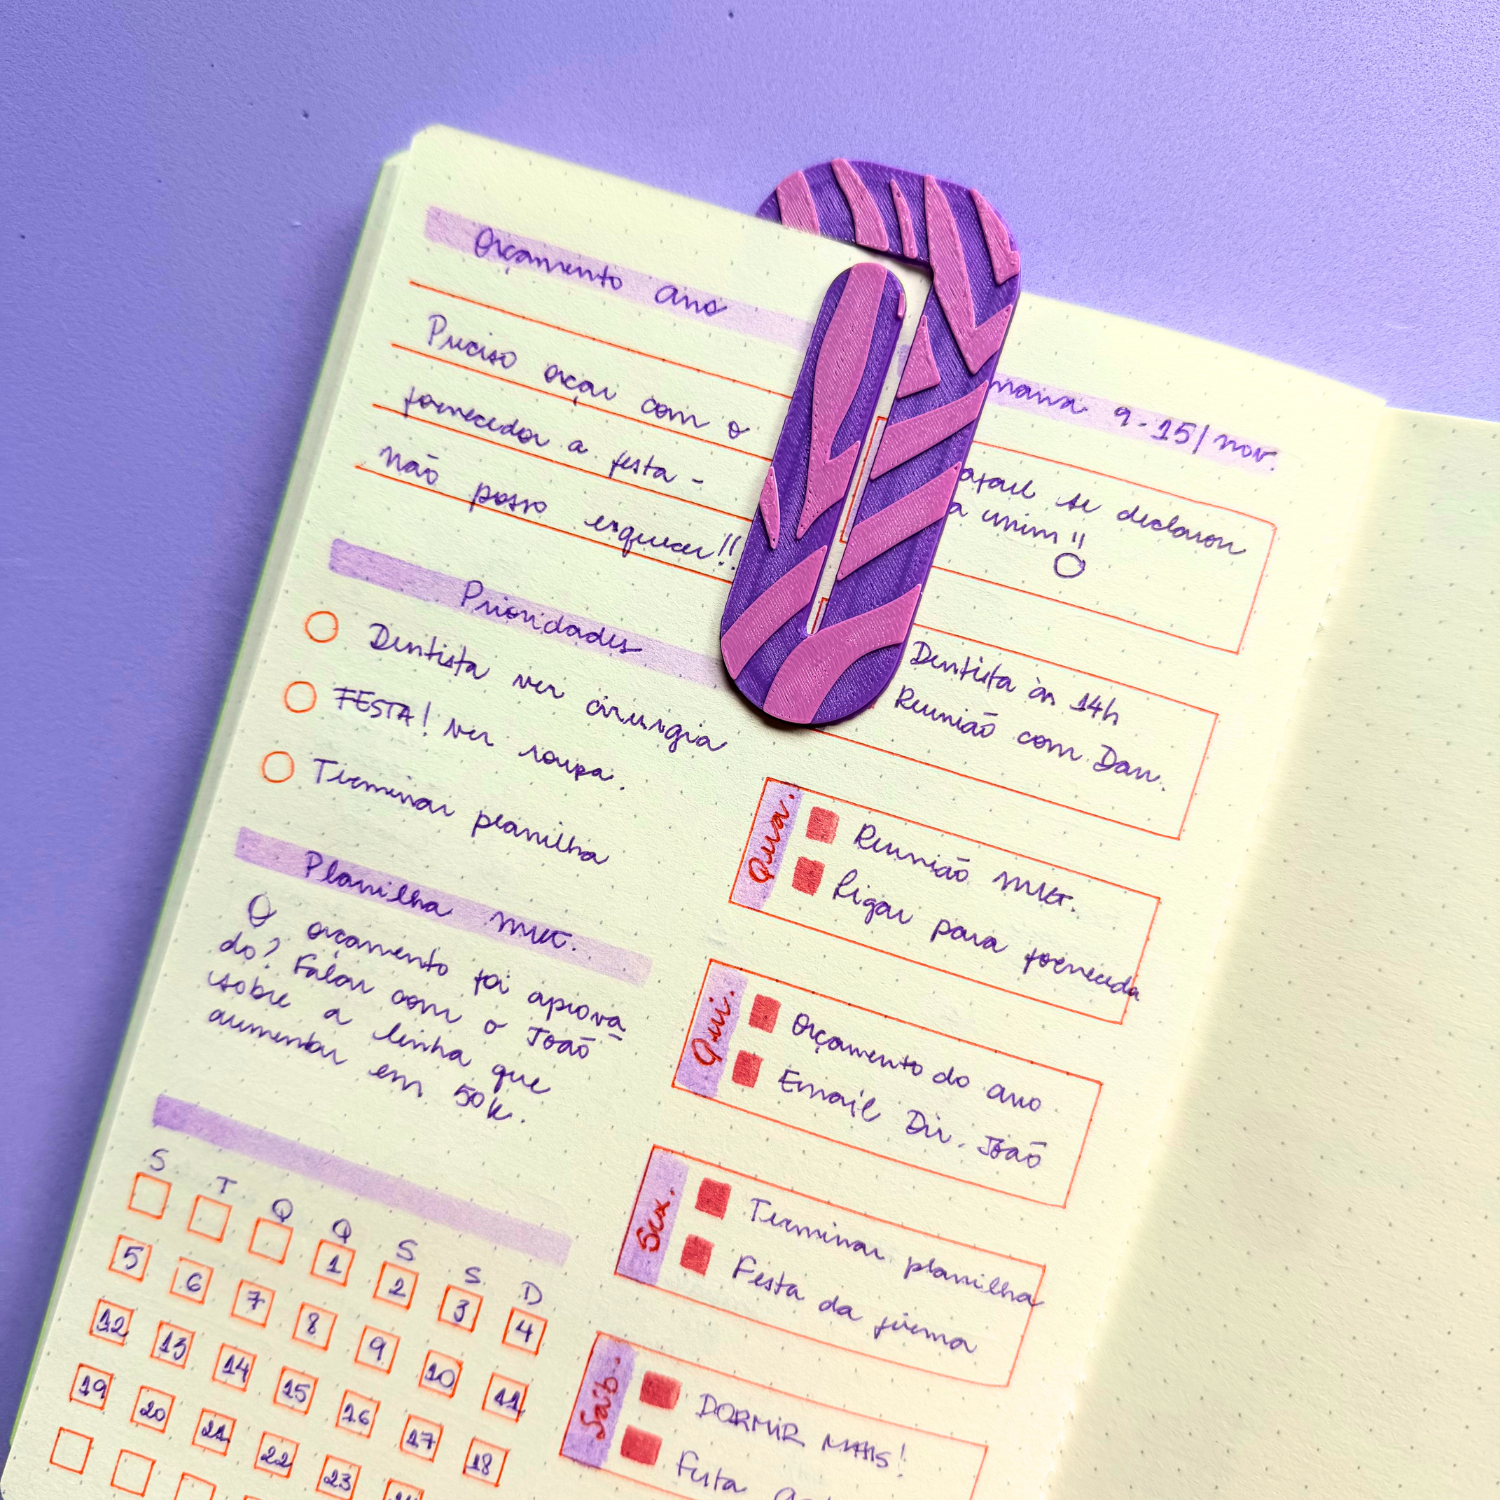 Orçamento ano
Preciso orçar com o
fornecedor a festa -
não posso esquecer!!
Prioridades
Dentista ver cirurgia
FESTA! ver roupa.
Terminar planilha
Planilha mkt.
O orçamento foi aprova
do? Falar com o João
sobre a linha que
aumentar em 50k.
S T Q Q S S D
1 2 3 4
5 6 7 8 9 10 11
12 13 14 15 16 17 18
19 20 21 22 23
mana 9-15/nov.
afael se declarou
a mim!!
Dentista às 14h
Reunião com Dan.
Qua.
Reunião mkt.
Ligar para forneceda
Qui.
Orçamento do ano
Email Dir. João
Sex.
Terminar planilha
Festa da firma
Sáb.
DORMIR MAIS!
Festa